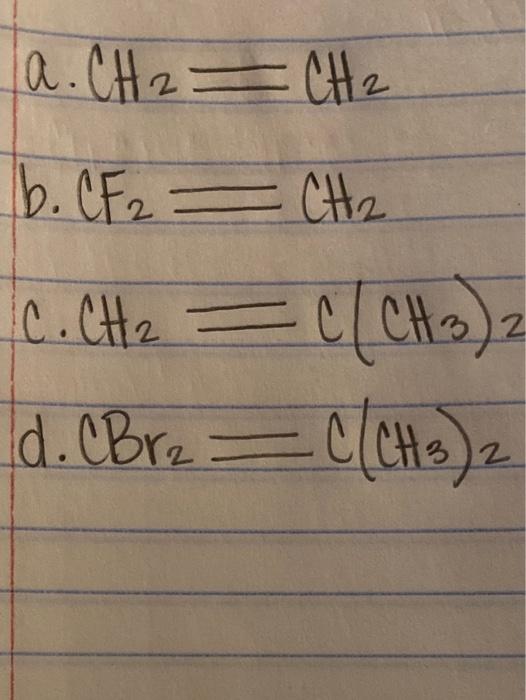 a. CH₂ = CH₂
b. CF₂ = CH₂
c. CH₂ = C(CH₃)₂
d. CBr₂ = C(CH₃)₂